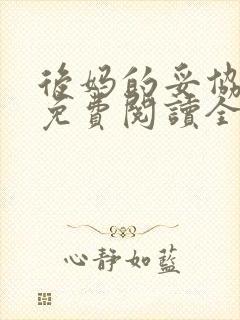 後媽的妥協
免費閱讀全
心靜如藍